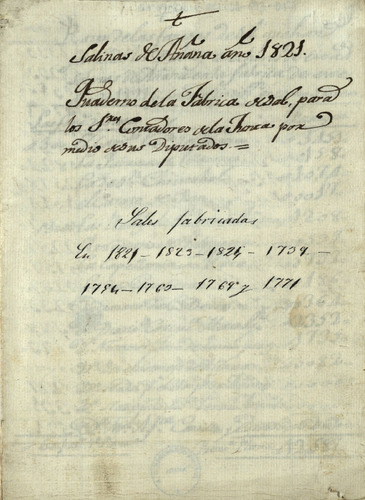 Salinas de Añana año 1821.
Quaderno de la Fabrica de Sal, para
los S.res Contadores de la Thoxa por
medio de sus Diputados. =
Sales fabricadas
En 1821 - 1823 - 1824 - 1739 -
1754 - 1763 - 1769 y 1771